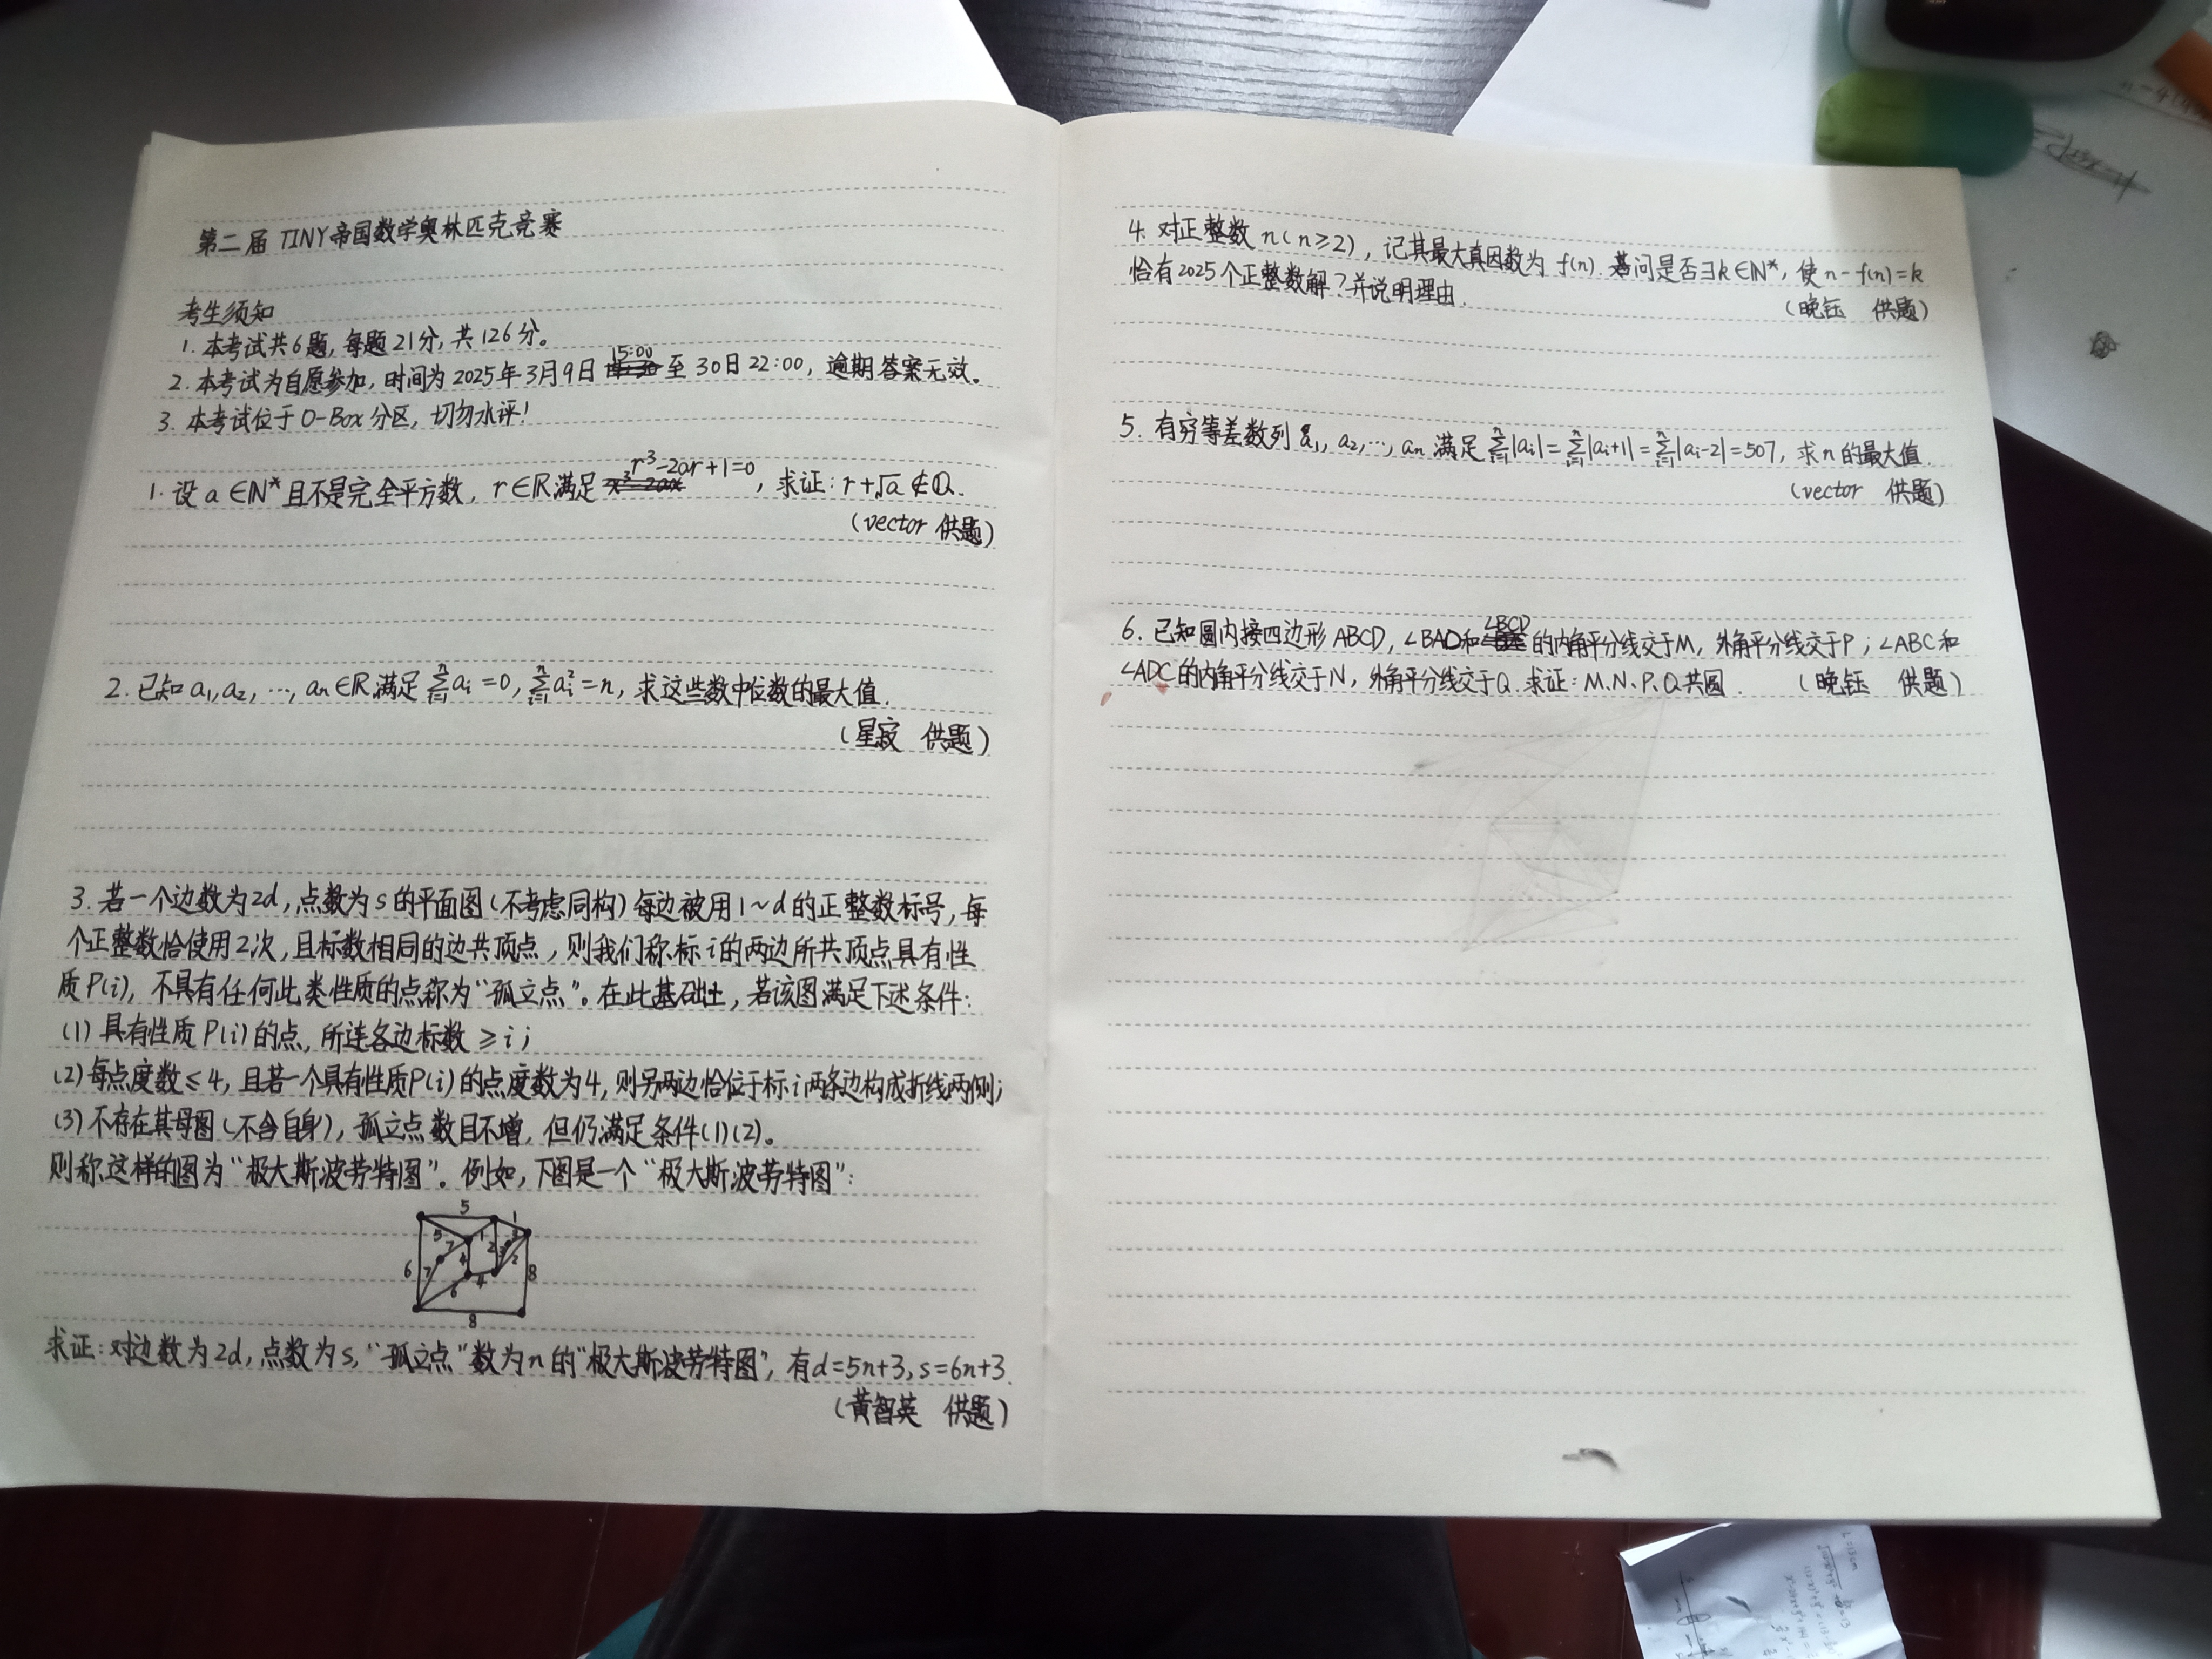 第二届 TINY帝国数学奥林匹克竞赛
考生须知
1. 本考试共6题, 每题21分, 共126分。
2. 本考试为自愿参加, 时间为2025年3月9日 15:00 至30日22:00, 逾期答案无效。
3. 本考试位于O-Box分区, 切勿水评!
1. 设a∈N*且不是完全平方数, r∈R满足 r³-2ar+1=0, 求证: r+√a∉Q.
(vector 供题)
2. 已知a₁,a₂,…,aₙ∈R满足 ∑ᵢ₌₁ⁿaᵢ=0, ∑ᵢ₌₁ⁿaᵢ²=n, 求这些数中位数的最大值.
(星寂 供题)
3. 若一个边数为2d, 点数为s的平面图(不考虑同构)每边被用1~d的正整数标号, 每
个正整数恰使用2次, 且标数相同的边共顶点, 则我们称标i的两边所共顶点具有性
质P(i), 不具有任何此类性质的点称为“孤立点”。在此基础上, 若该图满足下述条件:
(1) 具有性质P(i)的点, 所连各边标数≥i;
(2) 每点度数≤4, 且若一个具有性质P(i)的点度数为4, 则另两边恰位于标i两条边构成折线两侧;
(3) 不存在其母图(不含自身), 孤立点数目不增, 但仍满足条件(1)(2)。
则称这样的图为“极大斯波劳特图”。例如, 下图是一个“极大斯波劳特图”:
5 1
5 7 1 2 3 3
6 7 4 2 8
6 4
8
求证: 对边数为2d, 点数为s, “孤立点”数为n的“极大斯波劳特图”, 有d=5n+3, s=6n+3.
(黄智英 供题)
4. 对正整数n(n≥2), 记其最大真因数为f(n). 问是否∃k∈N*, 使n-f(n)=k
恰有2025个正整数解? 并说明理由.
(晚钰 供题)
5. 有穷等差数列a₁, a₂, …, aₙ满足 ∑ᵢ₌₁ⁿ|aᵢ|=∑ᵢ₌₁ⁿ|aᵢ+1|=∑ᵢ₌₁ⁿ|aᵢ-2|=507, 求n的最大值.
(vector 供题)
6. 已知圆内接四边形ABCD, ∠BAD和∠BCD的内角平分线交于M, 外角平分线交于P; ∠ABC和
∠ADC的内角平分线交于N, 外角平分线交于Q. 求证: M、N、P、Q共圆. (晚钰 供题)